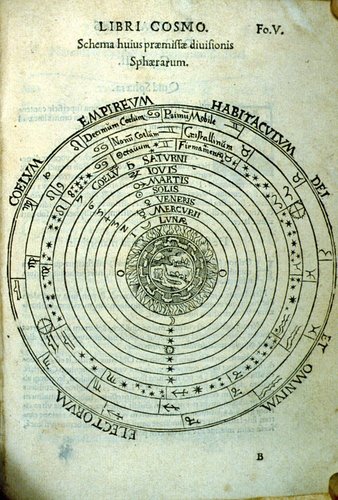 LIBRI COSMO. Fo.V.
Schema huius præmissæ diuisionis
Sphærarum.
COELVM EMPIREVM HABITACVLVM DEI
ET OMNIVM ELECTORVM
Decimum Coelum Primũ Mobile
Nonũ Coelum Cristallinum
Octauum Firmamentũ
COELV SATVRNI
IOVIS
MARTIS
SOLIS
VENERIS
MERCVRII
LVNAE
B